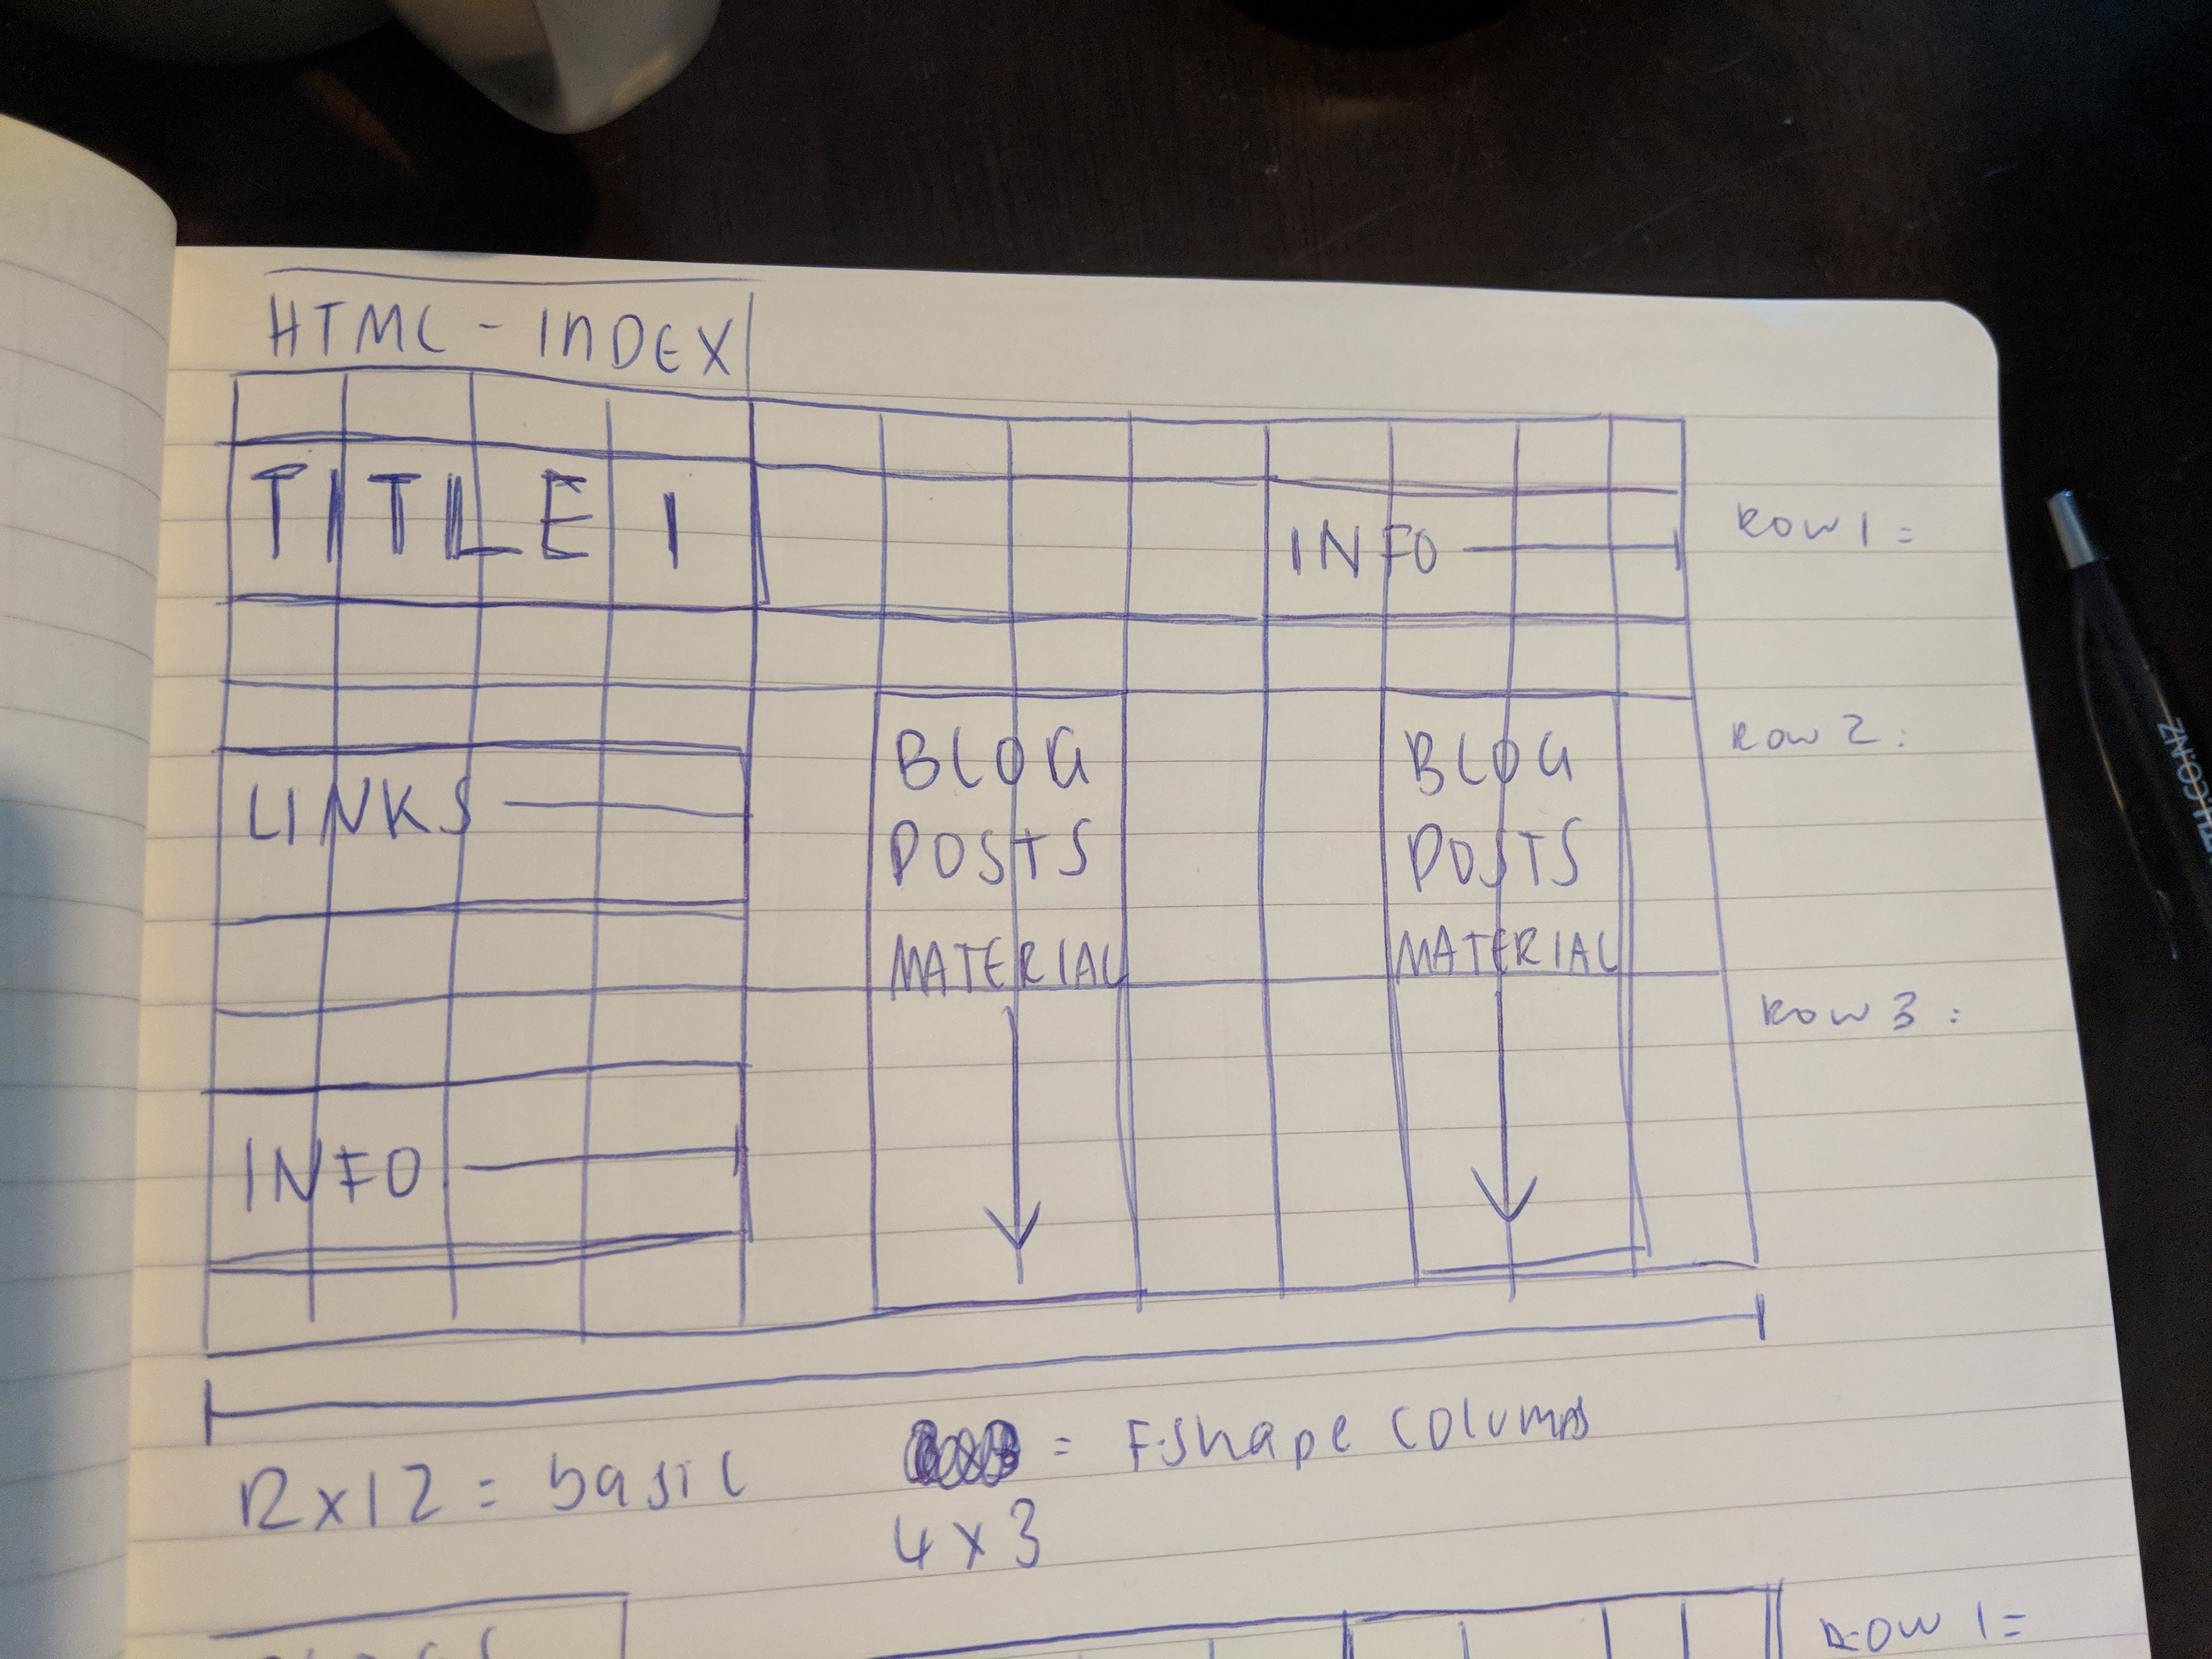 HTML - INDEX
TITLE 1
INFO
ROW 1 =
LINKS
BLOG
POSTS
MATERIAL
BLOG
POSTS
MATERIAL
ROW 2 :
INFO
ROW 3 :
12 x 12 = basic
= F-shape columns
4 x 3
ROW 1 =